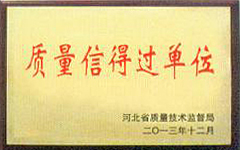 质量信得过单位
河北省质量技术监督局
二〇一三年十二月